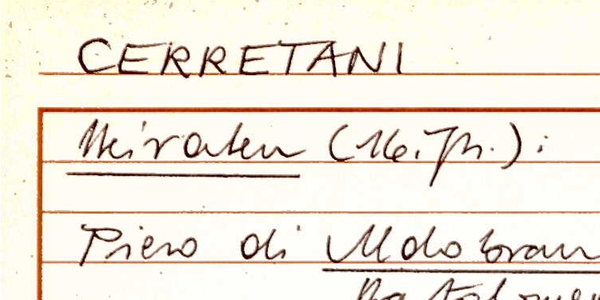 CERRETANI
Heiraten (16. Jh.):
Piero di Aldobran